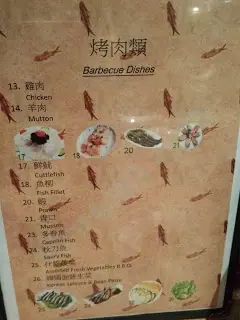 烤肉類
Barbecue Dishes
13. 雞肉
Chicken
14. 羊肉
Mutton
17
18
20
21
17. 鮮魷
Cuttlefish
18. 魚柳
Fish Fillet
20. 蝦
Prawn
21. 青口
Mussels
23. 多春魚
Capelin Fish
24. 秋刀魚
Saury Fish
25.
Assorted Fresh Vegetables B.B.Q.
26.
Korean Lettuce & Bean Paste